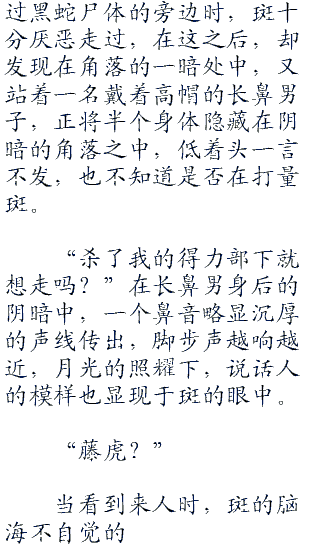 过黑蛇尸体的旁边时，斑十
分厌恶走过，在这之后，却
发现在角落的一暗处中，又
站着一名戴着高帽的长鼻男
子，正将半个身体隐藏在阴
暗的角落之中，低着头一言
不发，也不知道是否在打量
斑。
“杀了我的得力部下就
想走吗？”在长鼻男身后的
阴暗中，一个鼻音略显沉厚
的声线传出，脚步声越响越
近，月光的照耀下，说话人
的模样也显现于斑的眼中。
“藤虎？”
当看到来人时，斑的脑
海不自觉的